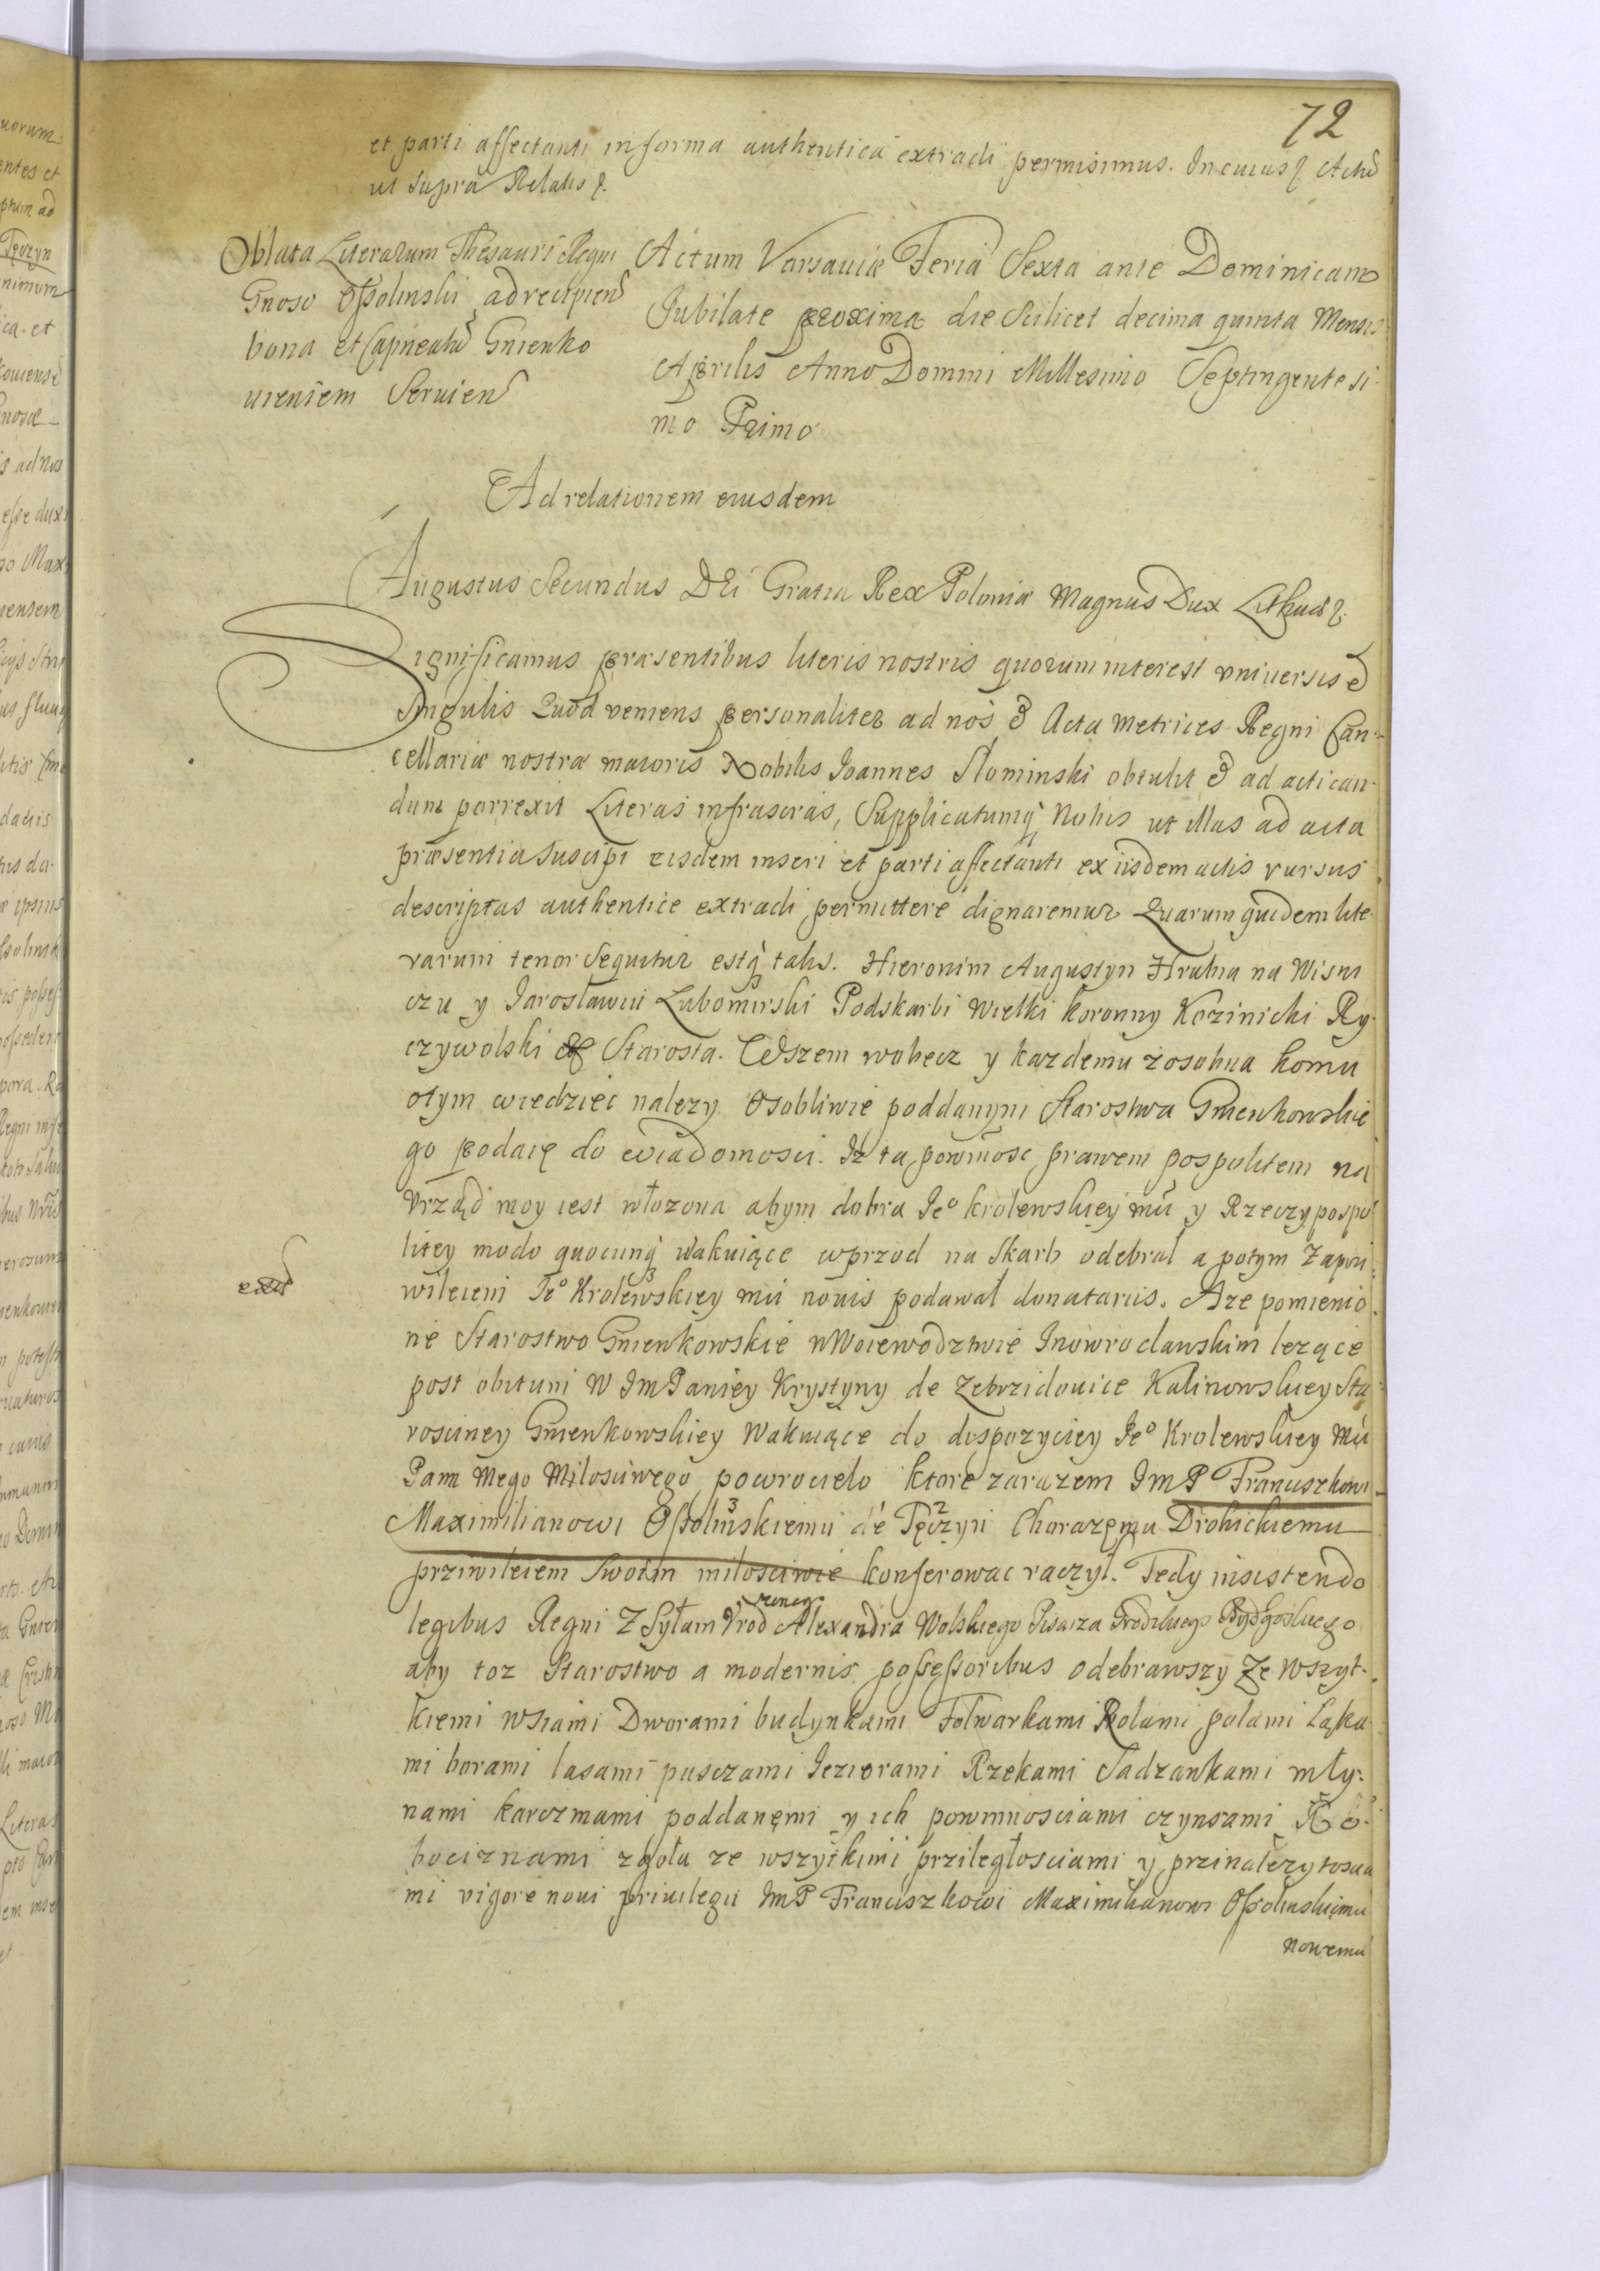 72
et parti affectanti in forma authentica extradi permisimus. In cuius
ut supra Relatio
Oblata Literarum Thesauri Regni
Gnoso Ossolinski ad recipien
bona et Capneatu Gnienko
uiensem Seruien
Actum Varsauiæ Feria Sexta ante Dominicam
Jubilate proxima die Scilicet decima quinta Mensis
Aprilis Anno Domini Millesimo Septingentesi
mo Primo
Ad relationem eiusdem
Augustus Secundus DEi Gratia Rex Poloniæ Magnus Dux Lithua
Significamus præsentibus literis nostris quorum interest vniuersis &
Singulis Quod veniens personaliter ad nos & Acta Metrices Regni Can-
cellariæ nostræ maioris Nobilis Joannes Slominski obtulit & ad actican-
dum porrexit Literas infrascras, Supplicatumq Nobis ut illas ad acta
præsentia suscipi eisdem inseri et parti affectanti ex iisdem actis rursus
descriptas authentice extradi permittere dignaremur Quarum quidem lite-
rarum tenor sequitur estq talis. Hieronim Augustyn Hrabia na Wisni
czu y Jarosławiu Lubomirski Podskarbi Wielki Koronny Kozinicki Ry-
czywolski & Starosta. Wszem wobecz y kazdemu zosobna komu
otym wiedziec nalezy Osobliwie poddanym Starostwa Gnienkowskie
go podaię do wiadomosci. Iż ta powinosc prawem pospolitem na
Vrząd moy iest włozona abym dobra Jeo krolewskiey mci y Rzeczypospo
litey modo quocunq wakuiące wprzod na Skarb odebrał a potym Zaprzi
wileiem Jeo Krolewskiey mci nouis podawał donatariis. Aże pomienio
ne Starostwo Gnienkowskie w Woiewodztwie Inowrocławskim lezące
post obitum W JmPaniey Krystyny de Zebrzidouice Kalinowskiey Sta-
rosciney Gnienkowskiey Wakuiące do dispozyciey Jeo Krolewskiey Mci
Pana Mego Miłosciwego powrocieło ktore zarazem JmP Franciszkowi
Maximilianowi Ossolinskiemu de Tęczyn Chorązemu Drohickiemu
przwileiem Swoim miłosciwie konferowac raczył. Tedy insistendo
legibus Regni Zsyłam Vrod Alexandra Wolskiego Pisarza Grodzkiego Bydgoskiego
aby toz Starostwo a modernis possessoribus odebrawszy ze wszyt-
kiemi wsiami Dworami budynkami Folwarkami Rolami polami Ląka
mi borami lasami pusczami Jeziorami Rzekami Sadzawkami mły-
nami karczmami poddanęmi y ich powinnosciami czynszami Ro-
bociznami zgoła ze wszytkimi przileglosciami y przinalezytoscia
mi vigore noui priuilegii JmP Franciszkowi Maximilianowi Ossolinskiemu
nowemu